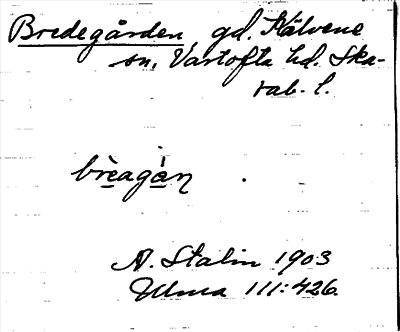 Bredegården gd. Kälvene
sn, Vartofta hd. Ska-
rab. l.
brèagàn
A. Stalin 1903
Ulma 111:426.